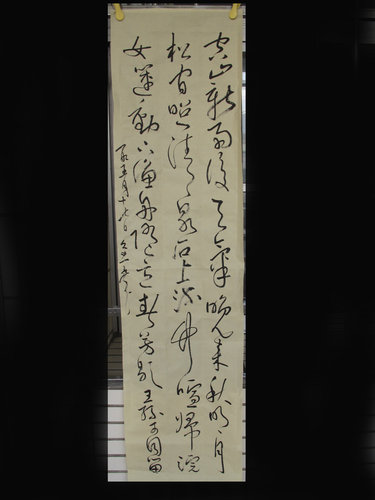 空山新雨後天氣晚來秋明月
松間照清泉石上流竹喧歸浣
女蓮動下漁舟隨意春芳歇王孫可自留
五月十七日